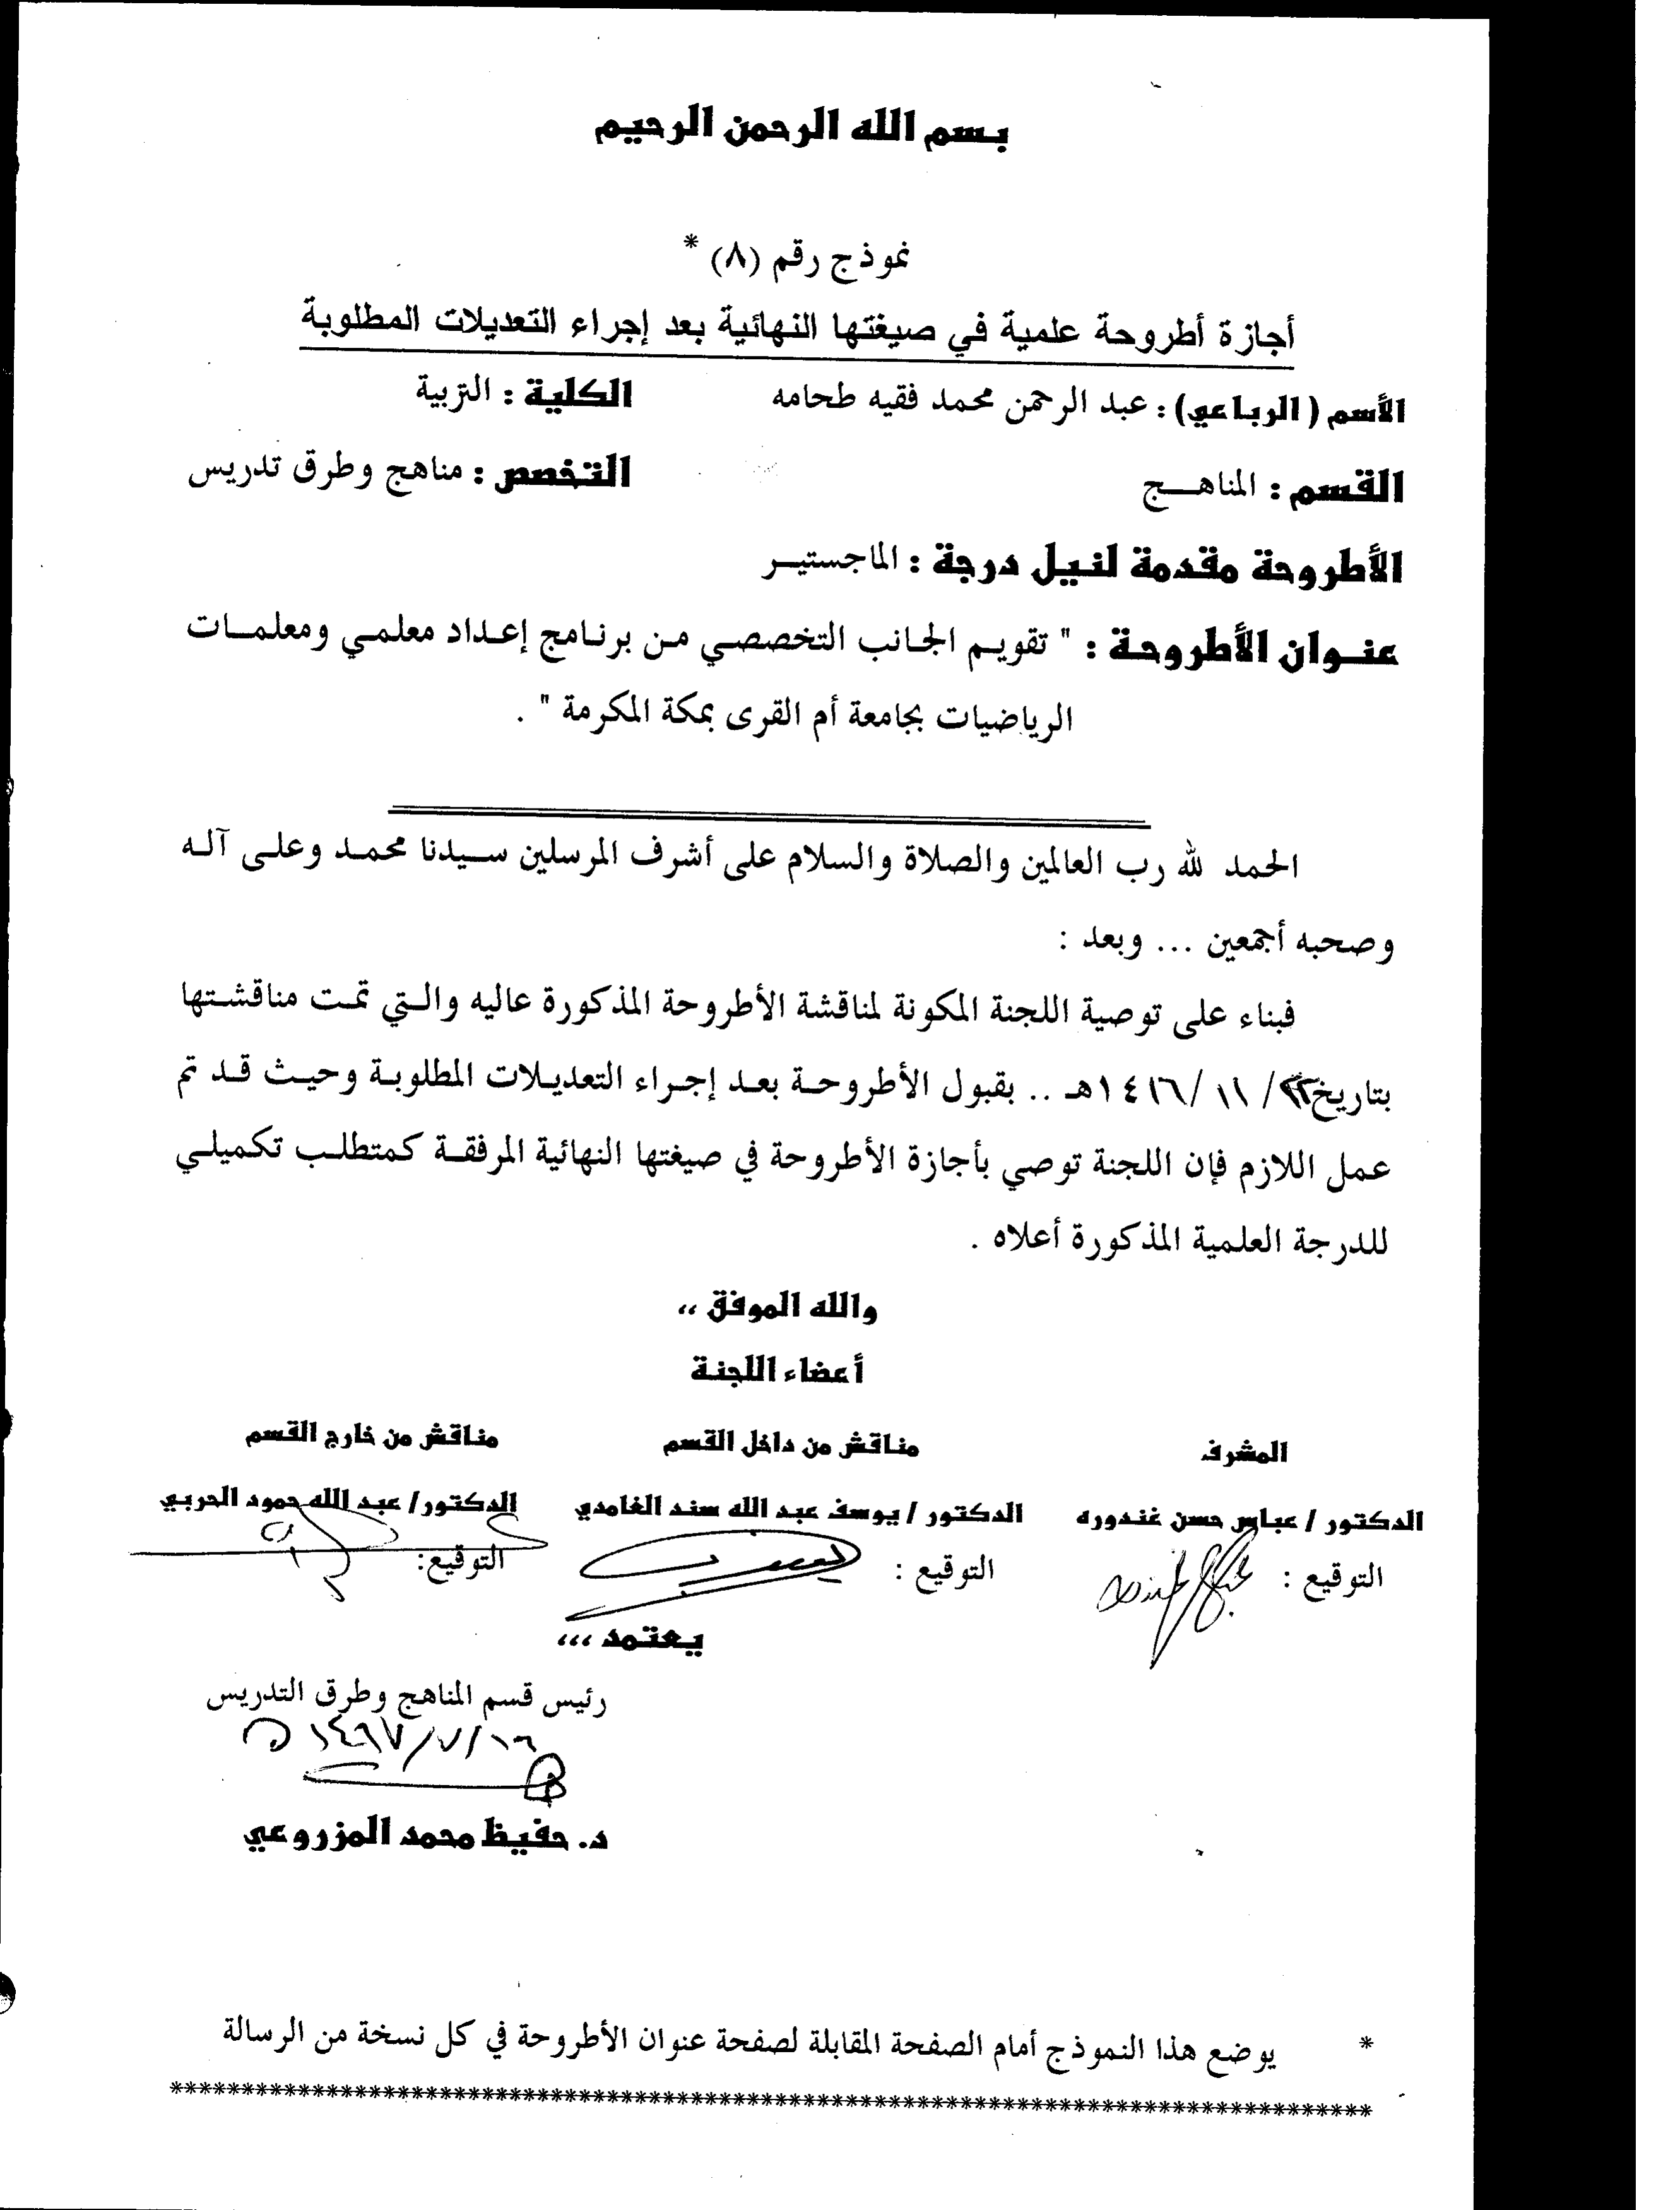 بسم الله الرحمن الرحيم
نموذج رقم (٨) *
أجازة أطروحة علمية في صيغتها النهائية بعد إجراء التعديلات المطلوبة
الأسم ( الرباعي) : عبد الرحمن محمد فقيه طحامه الكلية : التربية
القسم : المناهج التخصص : مناهج وطرق تدريس
الأطروحة مقدمة لنيل درجة : الماجستير
عنوان الأطروحة : " تقويم الجانب التخصصي من برنامج إعداد معلمي ومعلمات
الرياضيات بجامعة أم القرى بمكة المكرمة " .
الحمد لله رب العالمين والصلاة والسلام على أشرف المرسلين سيدنا محمد وعلى آله
وصحبه أجمعين ... وبعد :
فبناء على توصية اللجنة المكونة لمناقشة الأطروحة المذكورة عاليه والتي تمت مناقشتها
بتاريخ / ١١ / ١٤١٦هـ .. بقبول الأطروحة بعد إجراء التعديلات المطلوبة وحيث قد تم
عمل اللازم فإن اللجنة توصي بأجازة الأطروحة في صيغتها النهائية المرفقة كمتطلب تكميلي
للدرجة العلمية المذكورة أعلاه .
والله الموفق ،،
أعضاء اللجنة
المشرف مناقش من داخل القسم مناقش من خارج القسم
الدكتور / عباس حسن غندوره الدكتور / يوسف عبد الله سند الغامدي الدكتور/ عبد الله حمود الحربي
التوقيع : التوقيع : التوقيع:
يعتمد ،،،
رئيس قسم المناهج وطرق التدريس
د. حفيظ محمد المزروعي
* يوضع هذا النموذج أمام الصفحة المقابلة لصفحة عنوان الأطروحة في كل نسخة من الرسالة